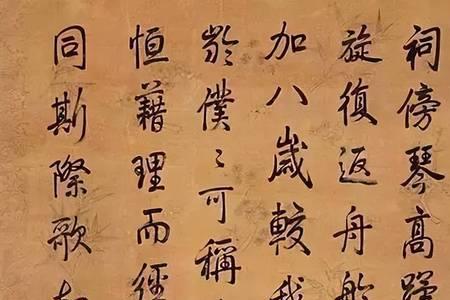 祠傍琴高
旋復返舟
加八歲較
於僕〻可稱
恒藉理而
同斯際歌